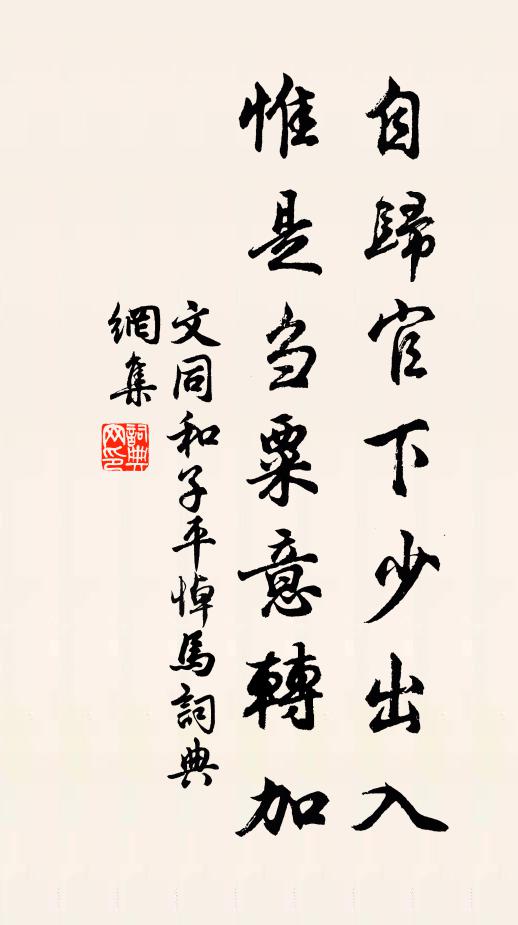 自歸官下少出入
惟是刍粟意轉加
文同和子平悼馬詞典
網集
詞典網印